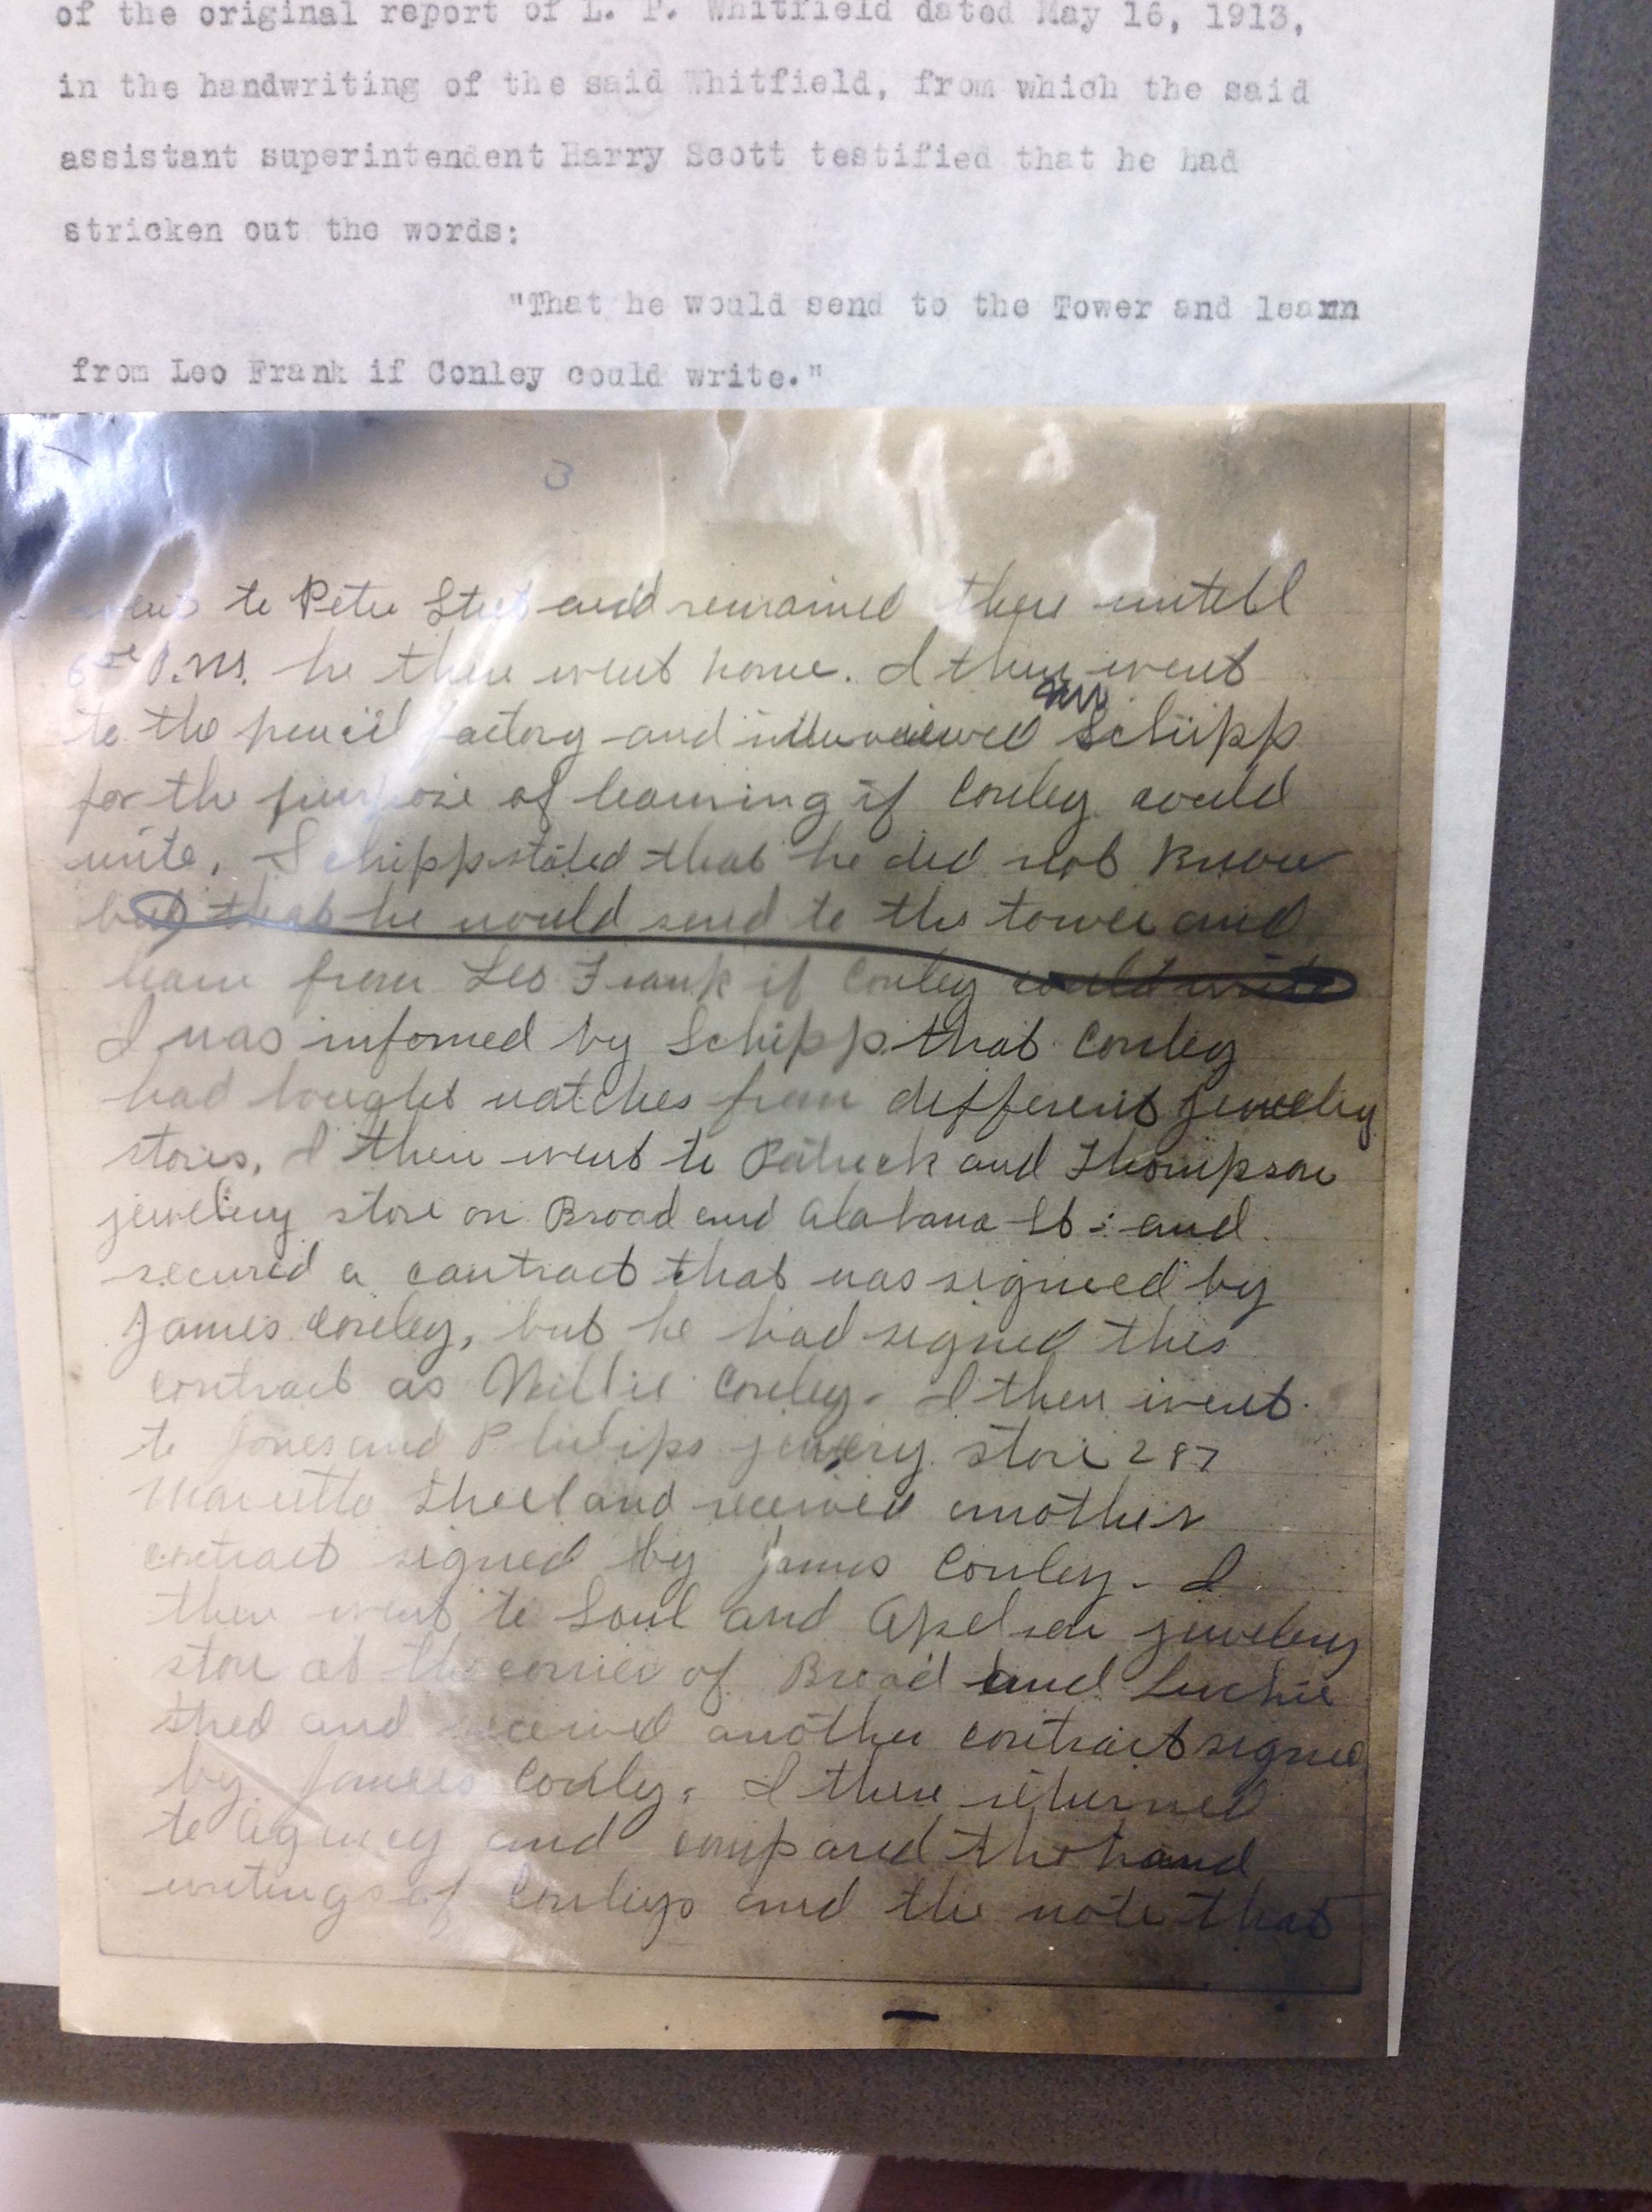 of the original report of L. P. Whitfield dated May 16, 1913,
in the handwriting of the said Whitfield, from which the said
assistant superintendent Harry Scott testified that he had
stricken out the words:
"That he would send to the Tower and learn
from Leo Frank if Conley could write."
3
went to Peter Street and remained there untill
P.M. he then went home. I then went
to the pencil factory and interviewed Mr Schiipp
for the purpose of learning if Conley could
write. Schipp stated that he did not know
but that he would send to the tower and
learn from Leo Frank if Conley could write
I was infomed by Schipp that Conley
had bought watches from different jewelry
stores. I then went to Patrick and Thompson
jewelery store on Broad and Alabama St: and
secured a contract that was signed by
James Conley, but he had signed this
contract as Willie Conley. I then went
to Jones and Philips jewery store 287
Marietta Street and received another
contract signed by James Conley. I
then went to Saul and Apelson jewelery
store at the corner of Broad and Luckie
and received another contract signed
by James Conley. I then returned
to agency and compared the hand
writings of Conleys and the note that